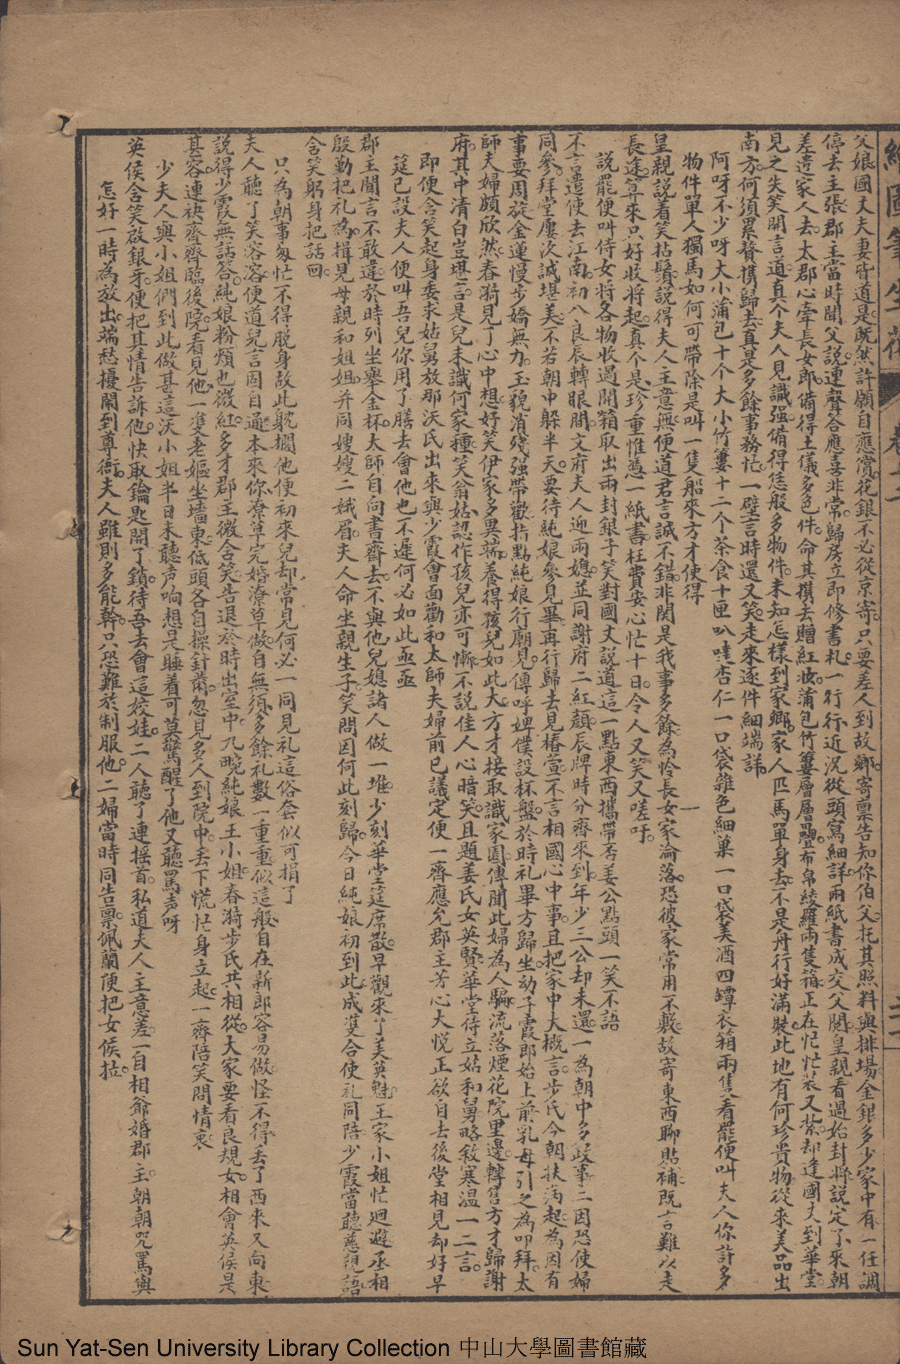 父娘國丈夫妻皆道是既然許願自應賞花銀不必從京寄只要差人到故鄉寄稟告知你伯父托其照料與排場金銀多少家中有一任調
停丟主張郡主當時聞父說連聲答應喜非常歸房立即修書札一行行近況從頭寫細詳兩紙書成交父閱皇親看過始封將說定了來朝
差遣家人去太郡心牽長女郎備得土儀多色件命其攢去贈紅妝蒲包竹簍層層疊布帛綾羅兩隻箱正在忙忙裝又紮却逢國丈到華堂
見之失笑開言道真个夫人見識强備得恁般多物件未知怎樣到家鄉家人匹馬單身去不是舟行好滿裝此地有何珍貴物從來美品出
南方何須累贅携歸去真是多餘事務忙一壁言時還又笑走來逐件細端詳
阿呀不少呀大小蒲包十个大小竹簍十二个茶食十匣叭噠杏仁一口袋雜色細菓一口袋美酒四罈衣箱兩隻看罷便叫夫人你許多
物件單人獨馬如何可帶除是叫一隻船來方才使得
皇親說着笑拈鬚說得夫人主意無便道君言誠不錯非関是我事多餘為怜長女家淪落恐彼家常用不敷故寄東西聊貼補既言難以走
長途算來只好收將起真个是珍重惟憑一紙書枉費安心忙十日令人又笑又嗟吁
說罷便叫侍女將各物收過開箱取出兩封銀子笑對國丈說道這一點東西攜帶否姜公點頭一笑不語
不言遣使去江南初八良辰轉眼間文府夫人迎兩媳並同謝府二紅顏辰牌時分齊來到年少三公却未還一為朝中多政事二因恐使婦
同參拜堂屢次誠堪羡不若朝中躱半天要待純娘參見畢再行歸去見椿萱不言相國心中事且把家中大概言步氏今朝扶病起為因有
事要周旋金蓮慢步嬌無力玉貌消殘强帶歡指點純娘行廟見傳呼婢僕設杯盤於時礼畢方歸坐幼子霞郎始上前乳母引之為叩拜太
師夫婦頗欣然春漪見了心中想好笑伊家多異端養得孩兒如此大方才接取識家園傳聞此婦為人騙流落煙花院里邊轉售方才歸謝
府其中清白豈堪言是兒未識何家種笑翁姑認作孩兒亦可慚不說佳人心暗笑且題姜氏女英賢華堂侍立姑和舅略敘寒溫一二言
即便含笑起身委求姑舅放那沃氏出來與少霞會面勸和太師夫婦前已議定便一齊應允郡主芳心大悅正欲自去後堂相見却好早
筵已設夫人便叫吾兒你用了膳去會他也不遲何必如此亟亟
郡主聞言不敢違於時列坐舉金杯太師自向書齋去不與他兒媳諸人做一堆少刻華堂筵席散早觀來了美英魁王家小姐忙迴避丞相
殷勤把礼為揖見母親和姐姐并同嫂嫂二娥眉夫人命坐親生子笑問因何此刻歸今日純娘初到此成雙合使礼同陪少霞當聽慈親語
含笑躬身把話回
只為朝事匆忙不得脫身故此躭擱他便初來兒却常見何必一同見礼這俗套似可捐了
夫人聽了笑容溶便道兒言固自通本來你療草完婚潦草做自無須多餘礼數一重重似這般自在新郎容易做怪不得丟了西來又向東
說得少霞無話答純娘粉頰也微紅多才郡主微含笑告退於時出室中九畹純娘王小姐春漪步氏共相從大家要看良規女相會英侯是
甚容連袂齊齊臨後院看見他一雙老嫗坐墻東低頭各自操針黹忽見多人到院中丟下慌忙身立起一齊陪笑問情衷
少夫人與小姐們到此做甚這沃小姐半日未聽声响想是睡着可莫驚醒了他又聽罵声呀
英侯含笑啟銀牙便把其情告訴他快取鑰匙開了鎖待吾去會這嬌娃二人聽了連搖首私道夫人主意差自相爺婚郡主朝朝咒罵與
怎好一時為放出端愁擾鬧到尊衙夫人雖則多能幹只恐難於制服他二婦當時同告稟佩蘭便把女侯拉
繪圖筆生花
Sun Yat-Sen University Library Collection 中山大學圖書館藏